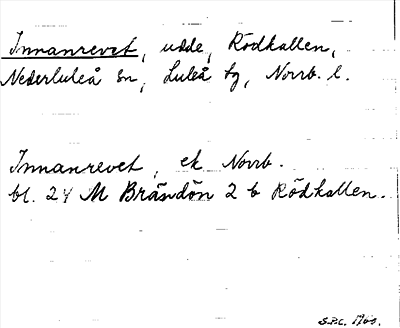 Innanrevet, udde, Rödkallen,
Nederluleå sn, Luleå tg, Norrb. l.
Innanrevet, ek Norrb.
bl. 24 M Brändön 2 b Rödkallen.
S.P.C. 1960.